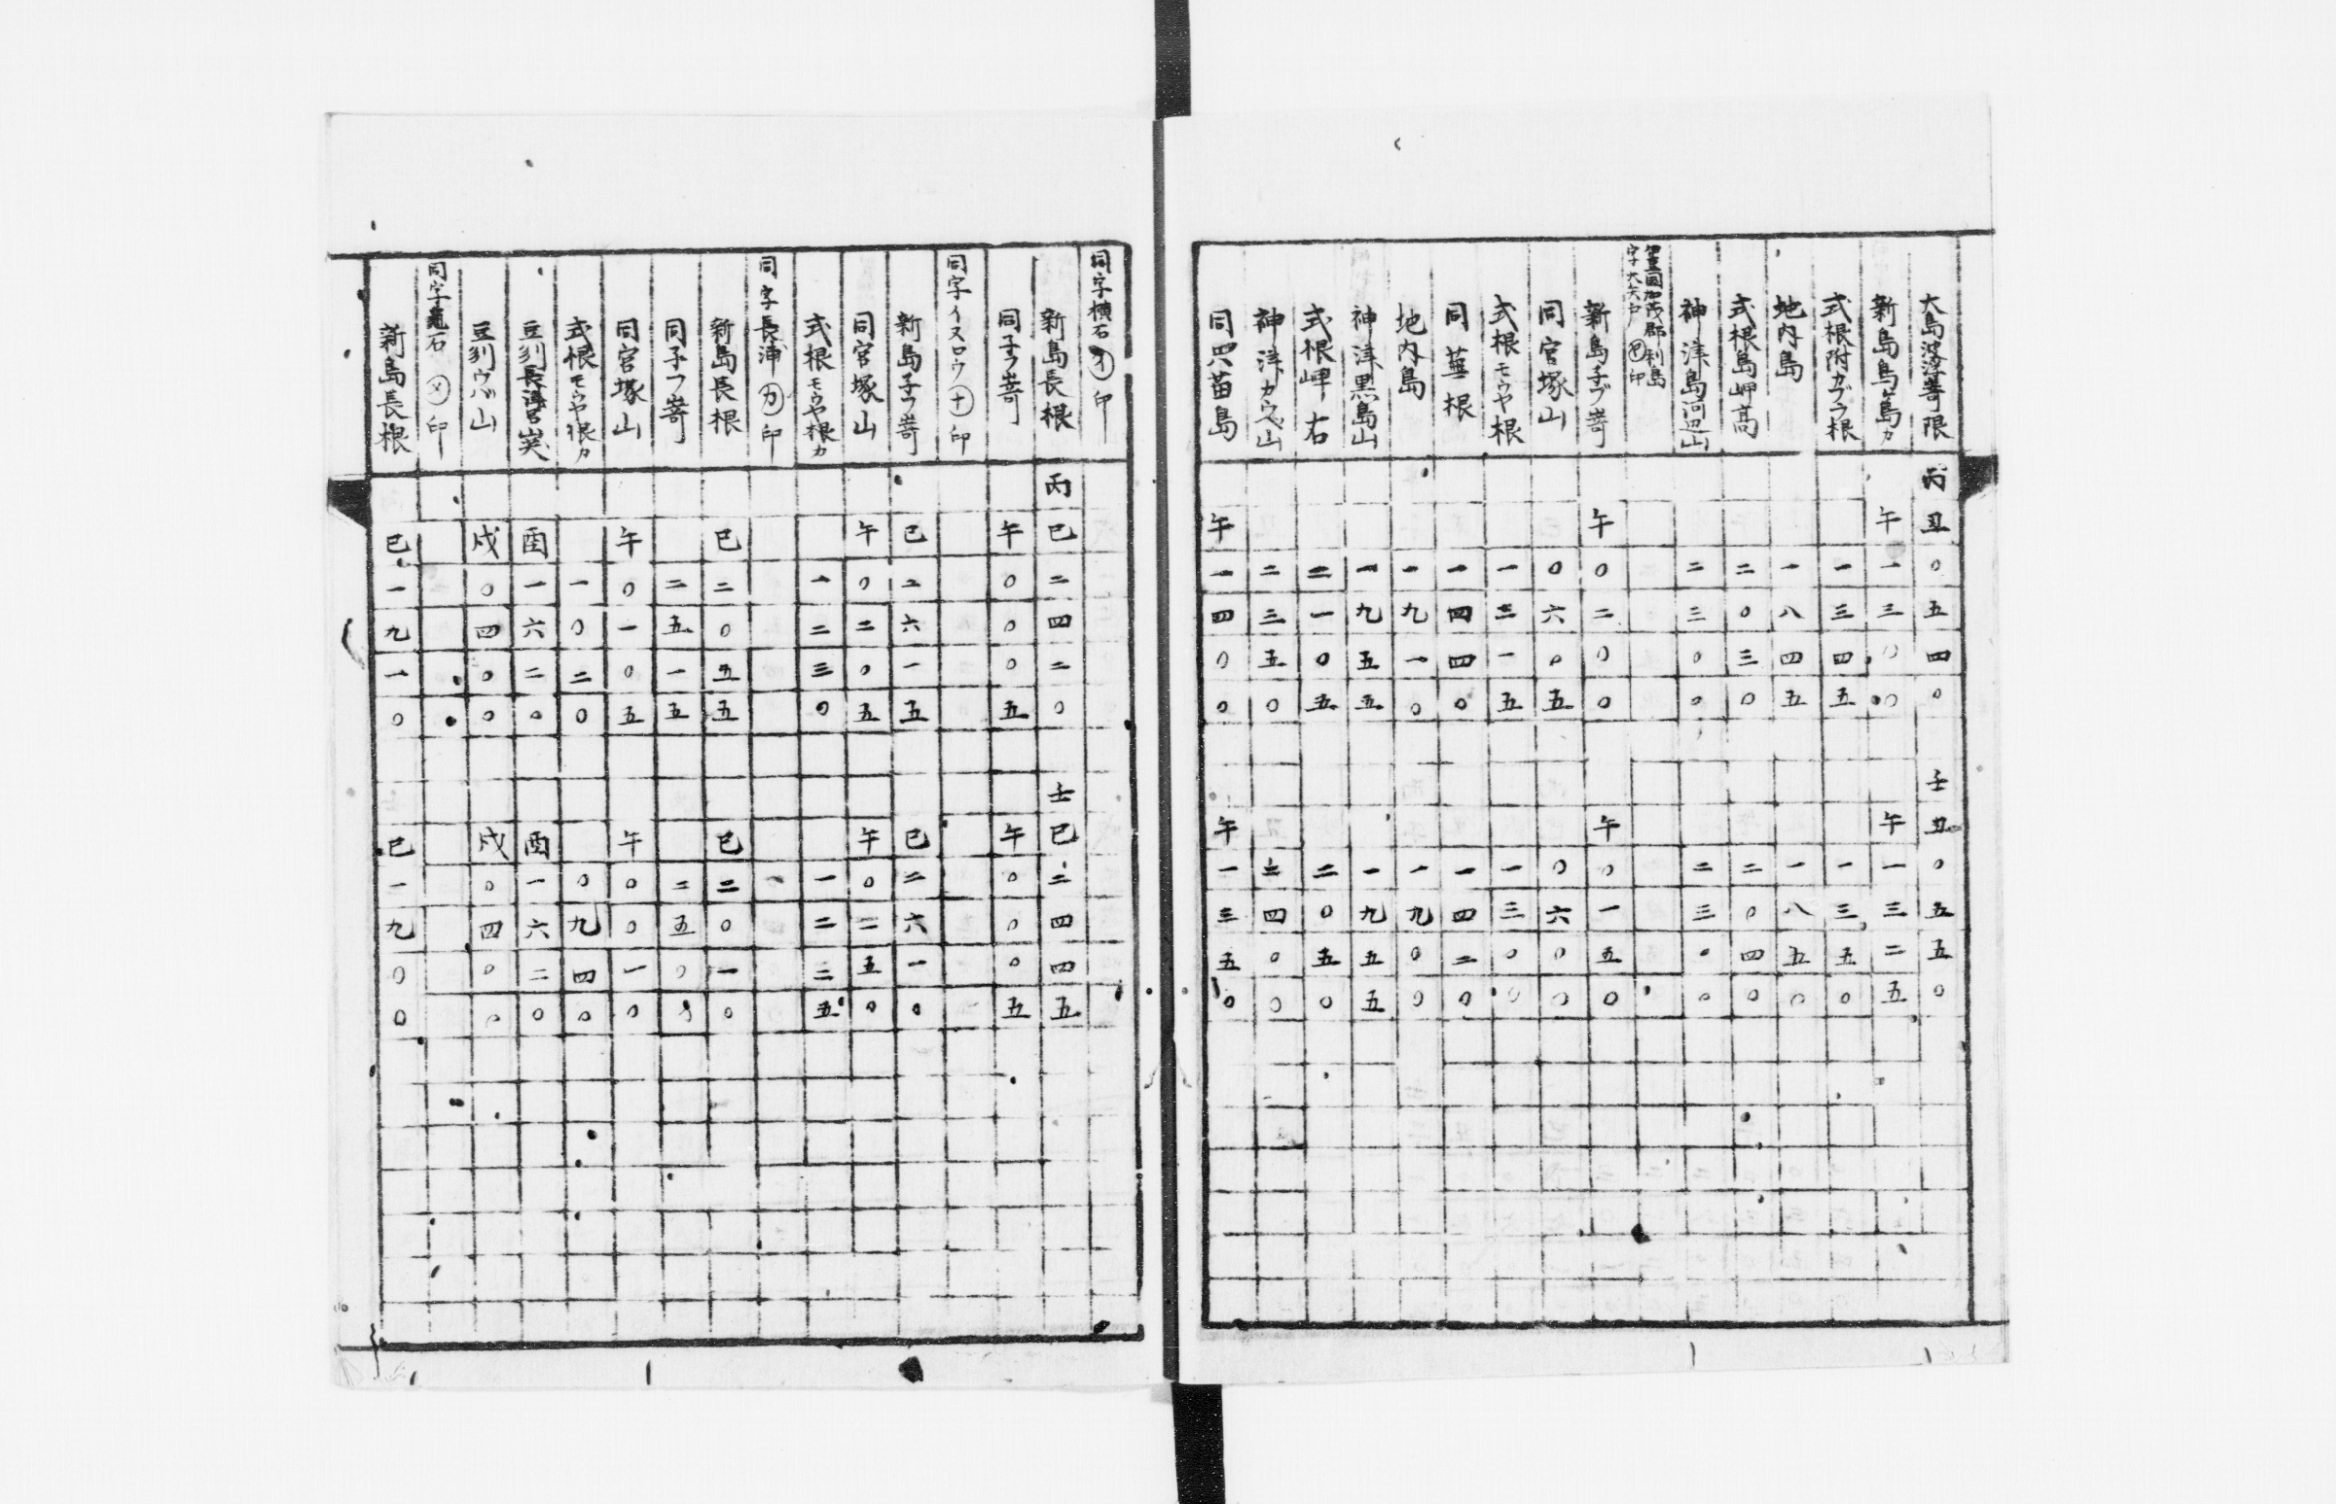 大島波浮崎限 丙 丑 〇 五 四 〇 壬 丑 〇 五 五 〇
新島島島カ 午 一 三 〇 〇 午 一 三 二 五
式根附カブラ根 一 三 四 五 一 三 五 〇
地内島 一 八 四 五 一 八 五 〇
式根島岬髙 二 〇 三 〇 二 〇 四 〇
神津島 山 二 三 〇 〇 二 三 〇 〇
豆国加茂郡利島
字大矢戸 印
新島子ブ嵜 午 〇 二 〇 〇 午 〇 一 五 〇
同宮塚山 〇 六 〇 五 〇 六 〇 〇
式根モウヤ根 一 三 一 五 一 三 〇 〇
同葉根 一 四 四 〇 一 四 二 〇
地内島 一 九 一 〇 一 九 〇 〇
神津黒島山 一 九 五 五 一 九 五 五
式根岬右 二 一 〇 五 二 〇 五 〇
神津カウベ山 二 三 五 〇 二 四 〇 〇
同 苗島 午 一 四 〇 〇 午 一 三 五 〇
同字横石 オ 印
新島長根 丙 巳 二 四 二 〇 壬 巳 二 四 四 五
同子フ嵜 午 〇 〇 〇 五 午 〇 〇 〇 五
同字イヌロウ ナ 印
新島子フ嵜 巳 二 六 一 五 巳 二 六 一 〇
同宮塚山 午 〇 二 〇 五 午 〇 二 五 〇
式根モウヤ根カ 一 二 三 〇 一 二 二 五
同字長浦 カ 印
新島長根 巳 二 〇 五 五 巳 二 〇 一 〇
同子フ嵜 二 五 一 五 二 五 〇 〇
同宮塚山 午 〇 一 〇 五 午 〇 〇 一 〇
式根モウヤ根カ 一 〇 二 〇 〇 九 四 〇
豆刕長津呂 酉 一 六 二 〇 酉 一 六 二 〇
豆刕ウバ山 戌 〇 四 〇 〇 戌 〇 四 〇 〇
同字竜石 メ 印
新島長根 巳 一 九 一 〇 巳 一 九 〇 〇